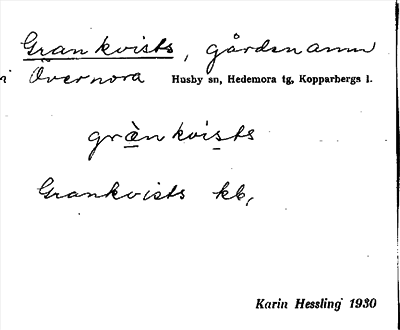 Grankvists, gårdsnamn
i Övernora Husby sn, Hedemora tg, Kopparbergs l.
grànkvists
Grankvists kb,
Karin Hessling 1930